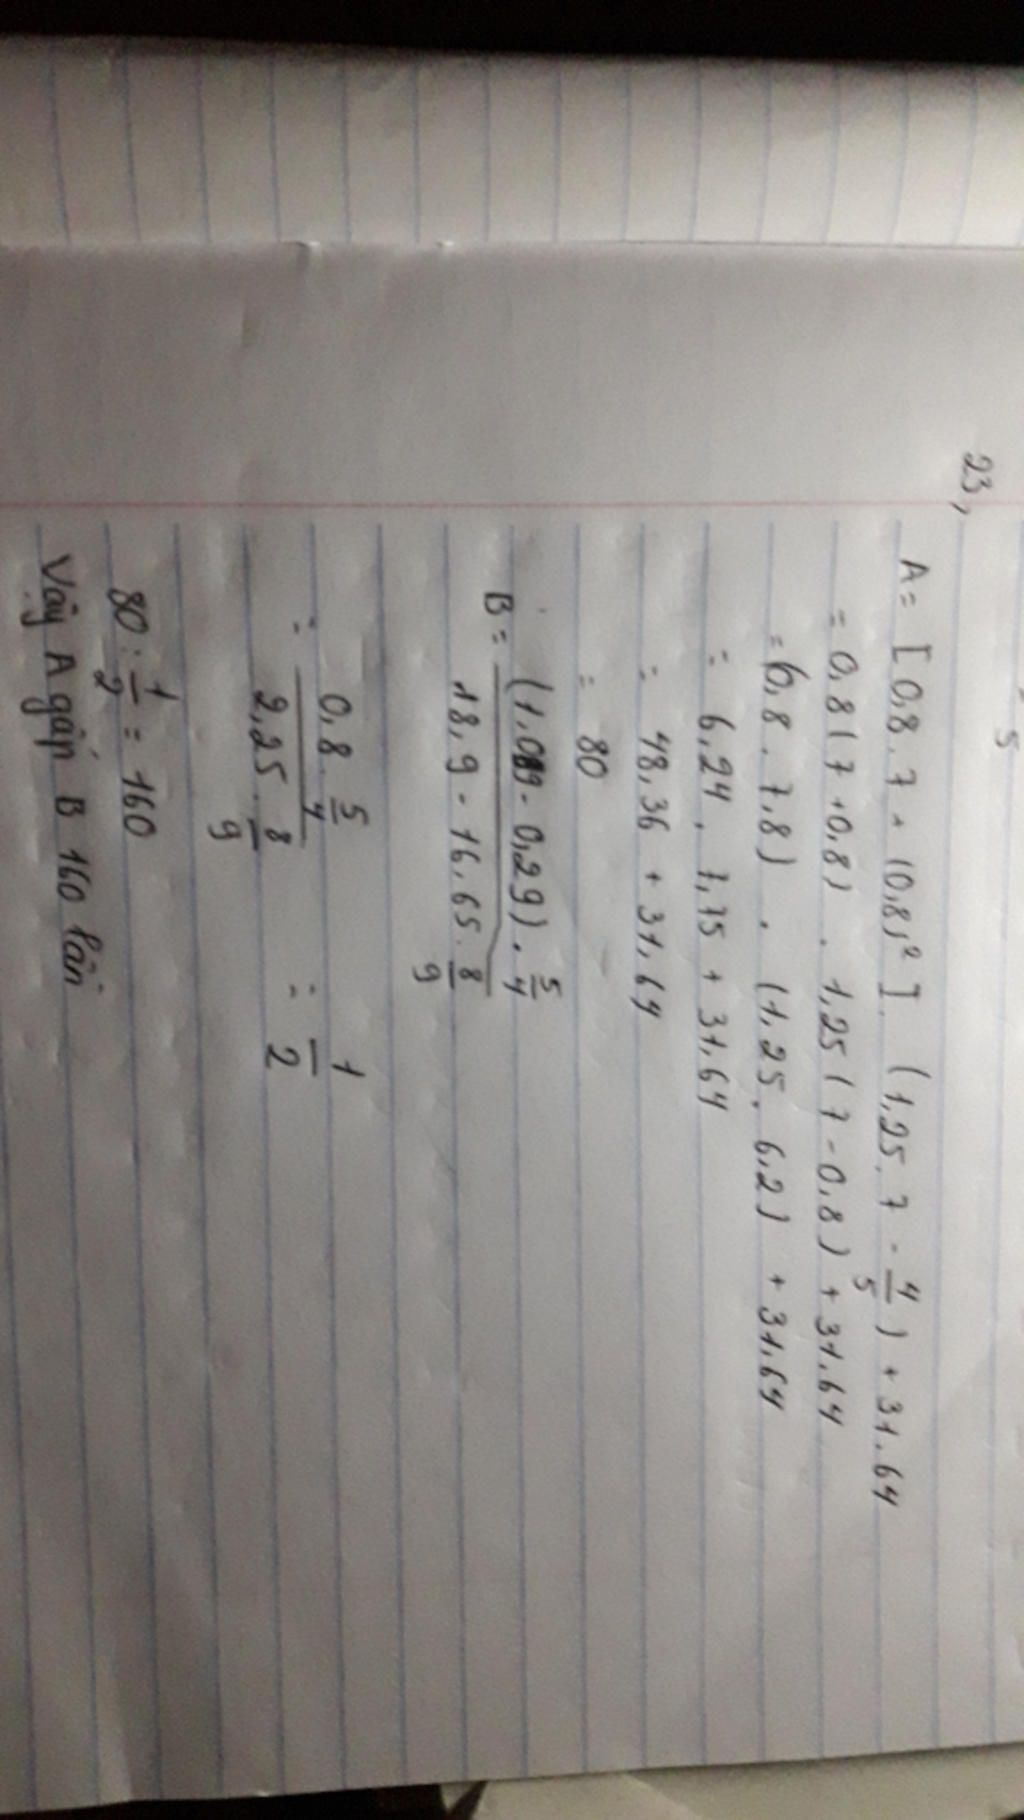 5
23,
A = [0,8 . 7 + (0,8)²] . (1,25 . 7 - 4/5) + 31,64
= 0,8 (7 + 0,8) . 1,25 (7 - 0,8) + 31,64
= (0,8 . 7,8) . (1,25 . 6,2) + 31,64
= 6,24 . 7,75 + 31,64
= 48,36 + 31,64
= 80
B = (1,09 - 0,29) . 5/4 / 18,9 - 16,65 . 8/9
= 0,8 . 5/4 / 2,25 . 8/9 = 1/2
80 : 1/2 = 160
Vậy A gấp B 160 lần